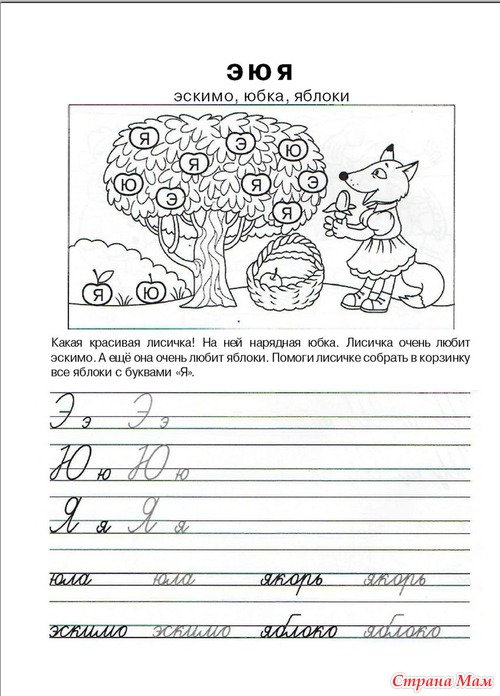 Э Ю Я
эскимо, юбка, яблоки
Я
Э
Я
Ю
Ю
Я
Э
Э
Я
Я
Ю
Какая красивая лисичка! На ней нарядная юбка. Лисичка очень любит
эскимо. А ещё она очень любит яблоки. Помоги лисичке собрать в корзинку
все яблоки с буквами «Я».
Э э Э э
Ю ю Ю ю
Я я Я я
юла юла якорь якорь
эскимо эскимо яблоко яблоко
Страна Мам